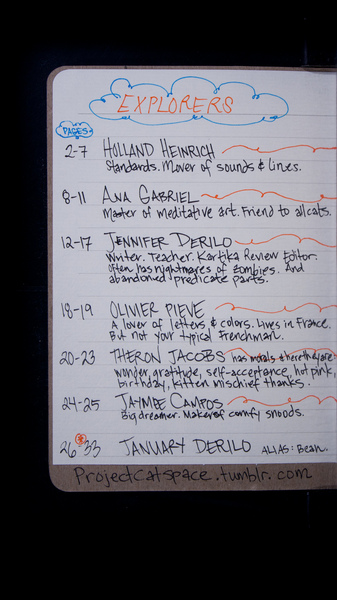 EXPLORERS
PAGES
2-7 HOLLAND HEINRICH
Standards. Mover of sounds & lines.
8-11 ANA GABRIEL
Master of meditative art. Friend to all cats.
12-17 JENNIFER DERILO
Writer. Teacher. Kartika Review Editor.
Often has nightmares of zombies. And
abandoned predicate parts.
18-19 OLIVIER PIEVE
A lover of letters & colors. Lives in France.
But not your typical Frenchman.
20-23 THERON JACOBS has morals & here they are
wonder, gratitude, self-acceptance, hot pink,
birthday, kitten mischief thanks.
24-25 JAYMEE CAMPOS
Big dreamer. Maker of comfy snoods.
26-33 JANUARY DERILO ALIAS: Bean.
Projectcatspace.tumblr.com